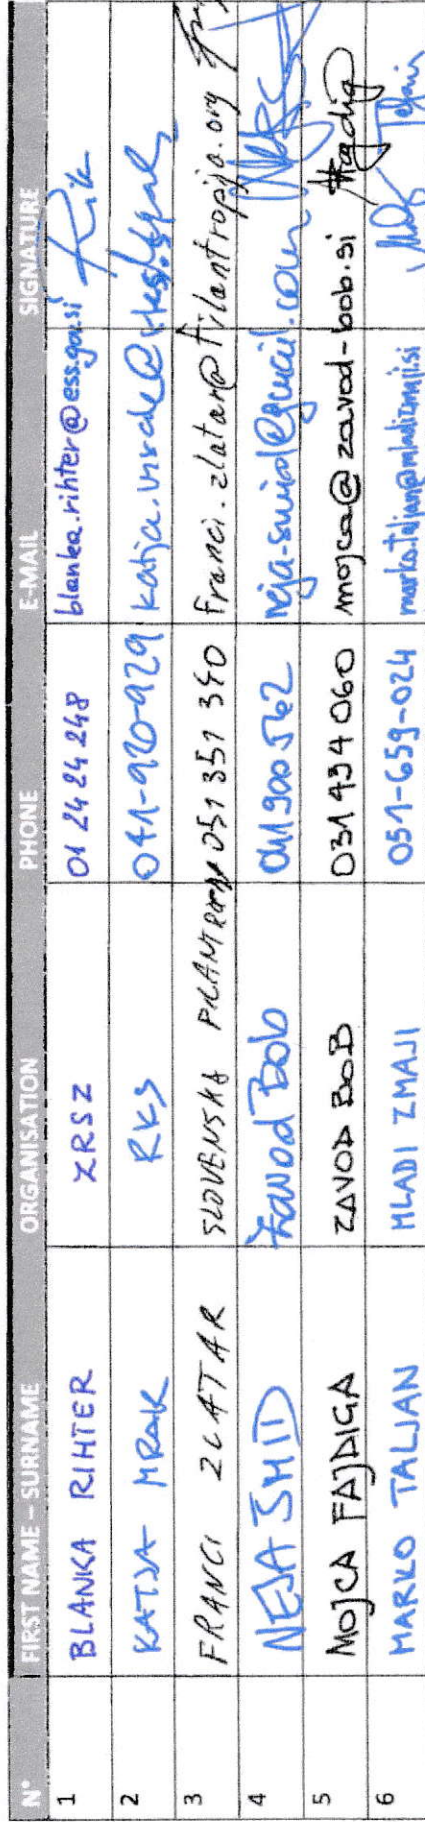 N° FIRST NAME – SURNAME ORGANISATION PHONE E-MAIL SIGNATURE
1 BLANKA RIHTER ZRSZ 01 24 24 248 blanka.rihter@ess.gov.si
2 KATJA MRAK RKS 041-920-929
3 FRANCI ZLATAR SLOVENSKA 051 351 340 franci.zlatar@filantropija.org
4 NEJA ŠMID Zavod Bob 041 900 562
5 MOJCA FAJDIGA ZAVOD BOB 031 494 060 mojca@zavod-bob.si
6 MARKO TALJAN MLADI ZMAJI 051-659-024 marko.taljan@mladizmaji.si